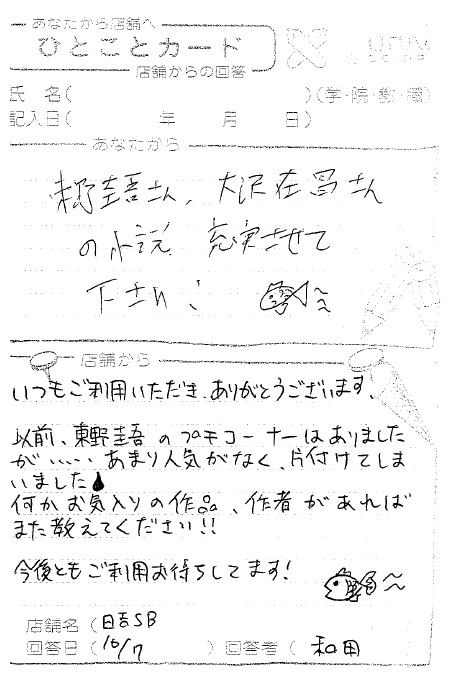 あなたから店舗へ
ひとことカード
店舗からの回答
氏 名( )(学・院・教・職)
記入日( 年 月 日)
あなたから
東野圭吾さん、大沢在昌さん
の小説 充実させて
下さい!
店舗から
いつもご利用いただき、ありがとうございます。
以前、東野圭吾のプチコーナーはありました
が‥‥‥あまり人気がなく、片付けてしま
いました
何かお気入りの作品、作者があれば
また教えてください!!
今後ともご利用お待ちしてます!
店舗名(日吉SB
回答日(10/7 )回答者(和田